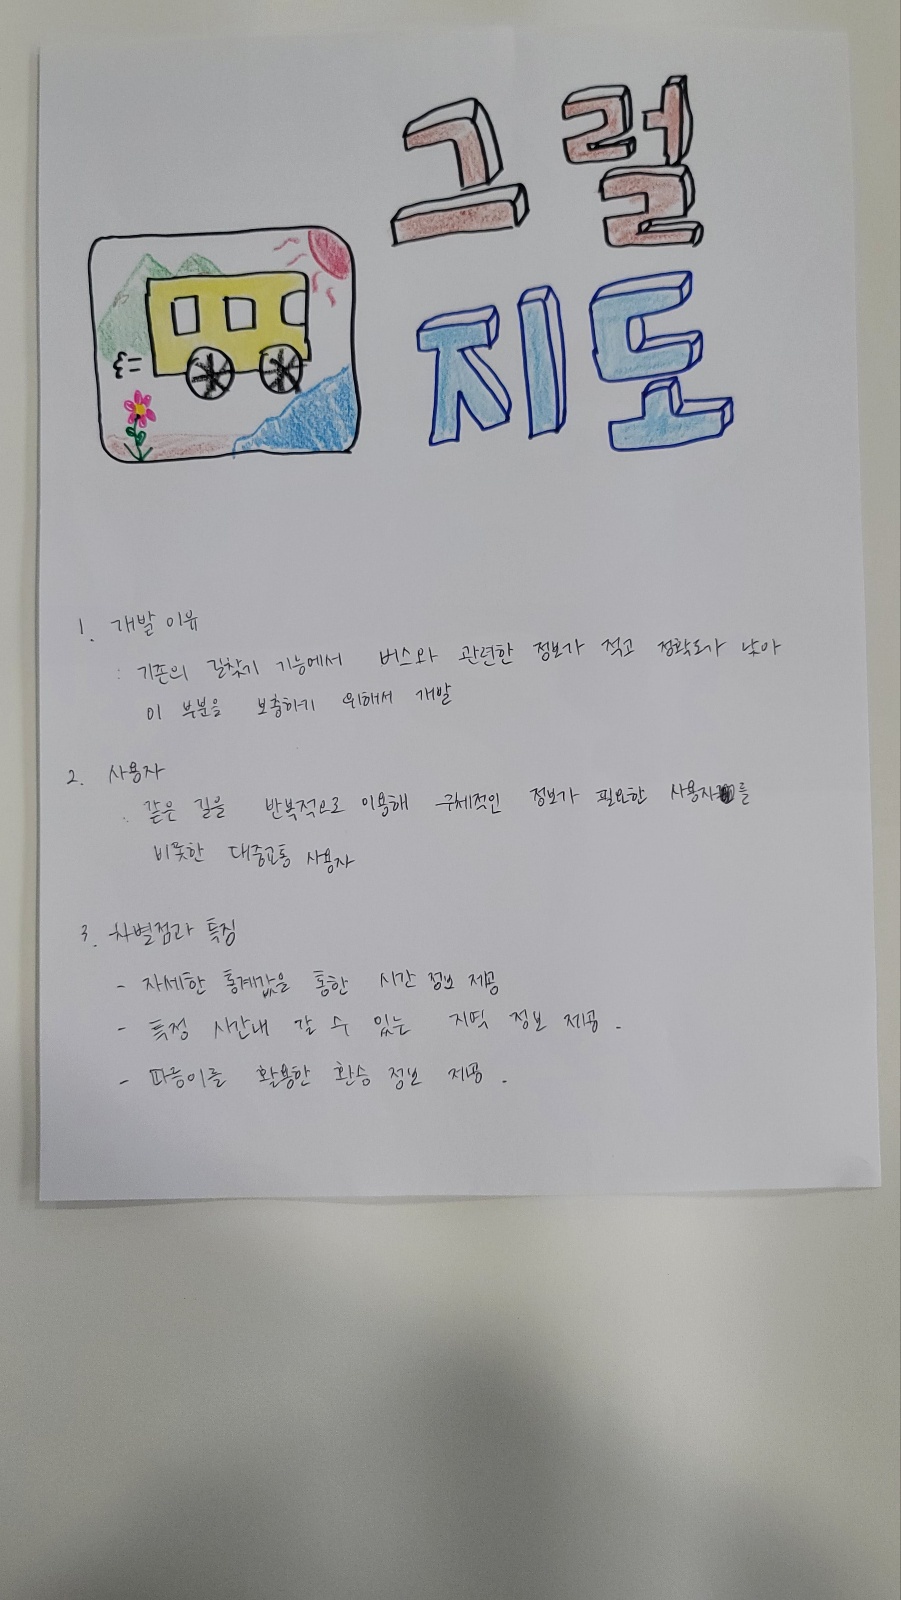 그럴
지도
1. 개발 이유
: 기존의 길찾기 기능에서 버스와 관련한 정보가 적고 정확도가 낮아
이 부분을 보충하기 위해서 개발
2. 사용자
: 같은 길을 반복적으로 이용해 구체적인 정보가 필요한 사용자를
비롯한 대중교통 사용자
3. 차별점과 특징
- 자세한 통계값을 통한 시간 정보 제공
- 특정 시간내 갈 수 있는 지역 정보 제공.
- 따릉이를 활용한 환승 정보 제공.